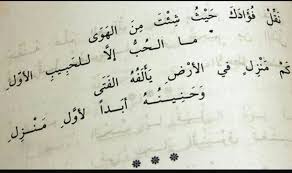 نَقِّلْ فُؤَادَكَ حَيْثُ شِئْتَ مِنَ الهَوَى
مَا الحُبُّ إلَّا للحَبِيبِ الأوَّلِ
كَمْ مَنْزِلٍ في الأرْضِ يَألَفُهُ الفَتَى
وَحَنِينُهُ أبَداً لأوَّلِ مَنْزِلِ
* * *